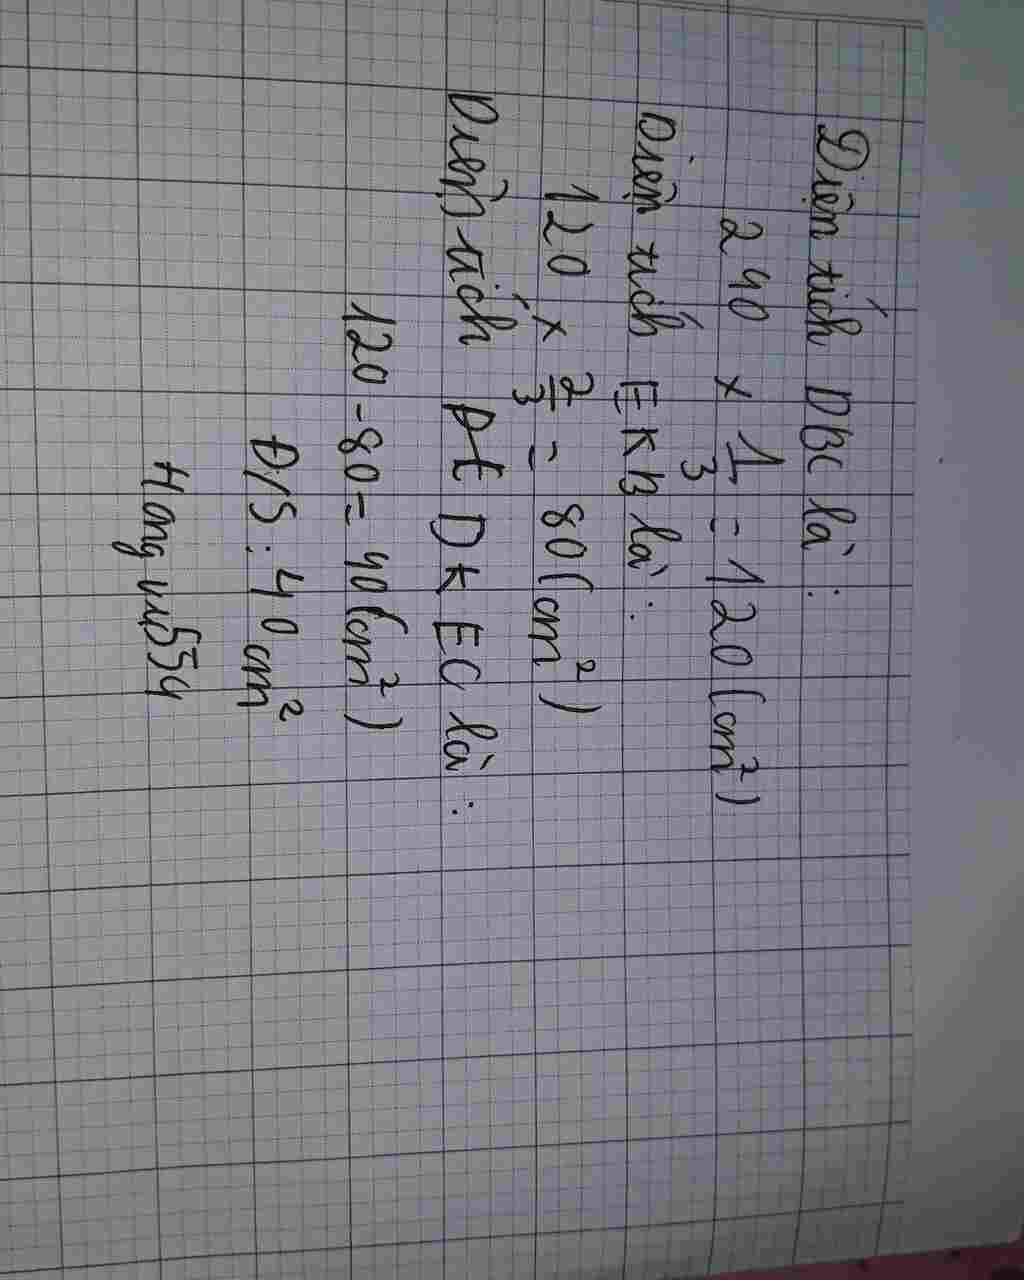 Diện tích DBC là:
240 × 1/3 = 120 (cm²)
Diện tích EKB là:
120 × 2/3 = 80 (cm²)
Diện tích DKEC là:
120 - 80 = 40 (cm²)
Đ/S: 40 cm²